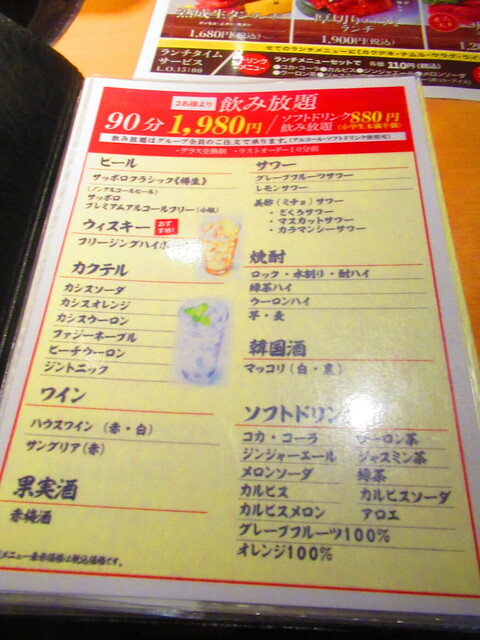 1,680円(税込)
厚切り
ランチ
1,900円(税込)
ランチタイム
サービス
L.O.15:00
ドリンク
メニュー
ランチメニューセットで 各種 110円(税込)
●コカ・コーラ ●カルピス ●ジンジャーエール ●メロンソーダ
2名様より 飲み放題
90分 1,980円 / ソフトドリンク 飲み放題 880円 (小学生未満半額)
飲み放題はグループ全員のご注文で承ります。(アルコール・ソフトドリンク併用可)
・グラス交換制 ・ラストオーダー10分前
ビール
サッポロクラシック《樽生》
(ノンアルコールビール)
サッポロ
プレミアムアルコールフリー(小瓶)
ウィスキー おすすめ!
フリージングハイボ
カクテル
カシスソーダ
カシスオレンジ
カシスウーロン
ファジーネーブル
ピーチウーロン
ジントニック
ワイン
ハウスワイン (赤・白)
サングリア(赤)
果実酒
赤梅酒
サワー
グレープフルーツサワー
レモンサワー
美酢(ミチョ)サワー
・ざくろサワー
・マスカットサワー
・カラマンシーサワー
焼酎
ロック・水割り・酎ハイ
緑茶ハイ
ウーロンハイ
芋・麦
韓国酒
マッコリ(白・黒)
ソフトドリン
コカ・コーラ ウーロン茶
ジンジャーエール ジャスミン茶
メロンソーダ 緑茶
カルピス カルピスソーダ
カルピスメロン アロエ
グレープフルーツ100%
オレンジ100%
メニュー表示価格は税込価格です。